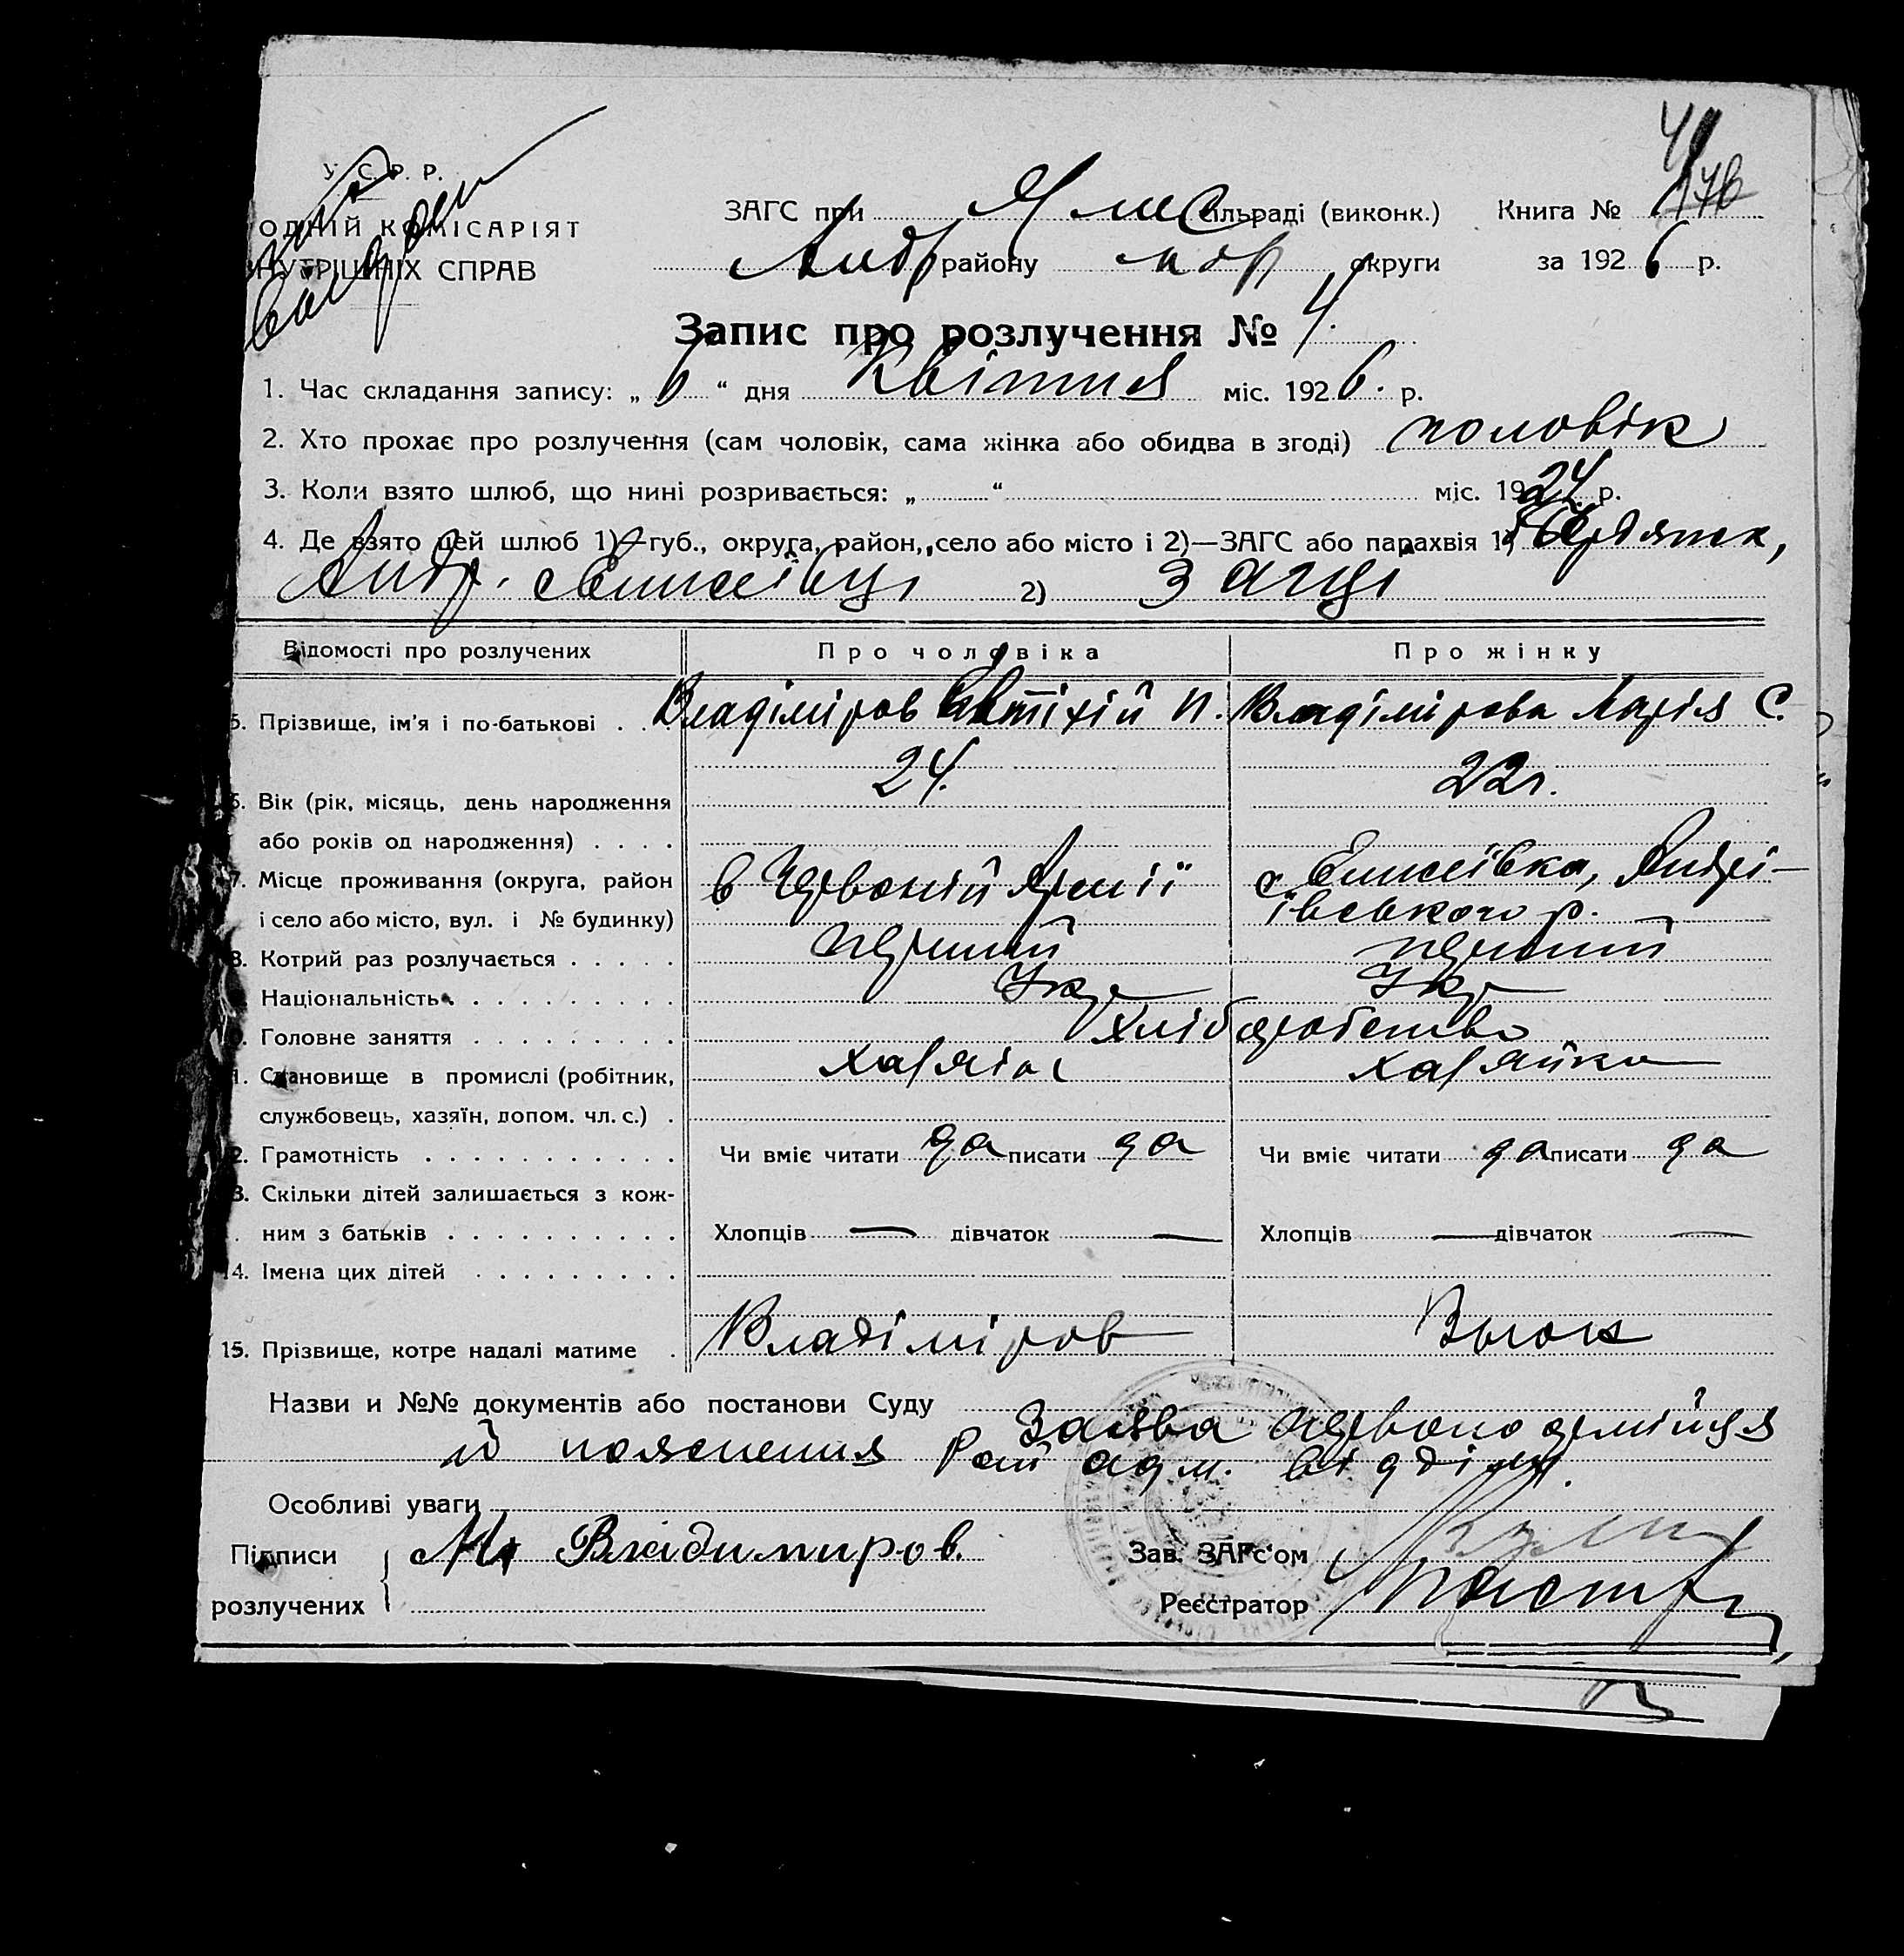 У. С. Р. Р.
ОДНІЙ КОМІСАРІЯТ
НУТРІШНІХ СПРАВ
ЗАГС при сільраді (виконк.) Книга № 176
Андр району округи за 1926 р.
Запис про розлучення № 4.
1. Час складання запису: „6“ дня Квітня міс. 1926. р.
2. Хто прохає про розлучення (сам чоловік, сама жінка або обидва в згоді) чоловік
3. Коли взято шлюб, що нині розривається: „ “ міс. 1924 р.
4. Де взято цей шлюб 1)—губ., округа, район, село або місто і 2)—ЗАГС або парахвія 1) Бердянск,
Андр. Єлисеївці 2) Загці
Відомості про розлучених Про чоловіка Про жінку
5. Прізвище, ім'я і по-батькові Владіміров Євтіхій П. Владімірова Марія С.
24. 22г.
6. Вік (рік, місяць, день народження
або років од народження)
7. Місце проживання (округа, район в Червоній Армії с. Єлисеївка, Андрі-
і село або місто, вул. і № будинку) івського р.
8. Котрий раз розлучається перший перший
Національність Укр Укр
Головне заняття хліборобство
1. Становище в промислі (робітник, хазяїн хазяйка
службовець, хазяїн, допом. чл. с.)
2. Грамотність Чи вміє читати да писати да Чи вміє читати да писати да
3. Скільки дітей залишається з кож-
ним з батьків Хлопців — дівчаток — Хлопців — дівчаток —
14. Імена цих дітей
15. Прізвище, котре надалі матиме Владіміров Вьюк
Назви и №№ документів або постанови Суду Заява червоноармійця
й пояснення Рай адм. відділу.
Особливі уваги
Підписи Владимиров.
розлучених
Зав. ЗАГс'ом
Реєстратор